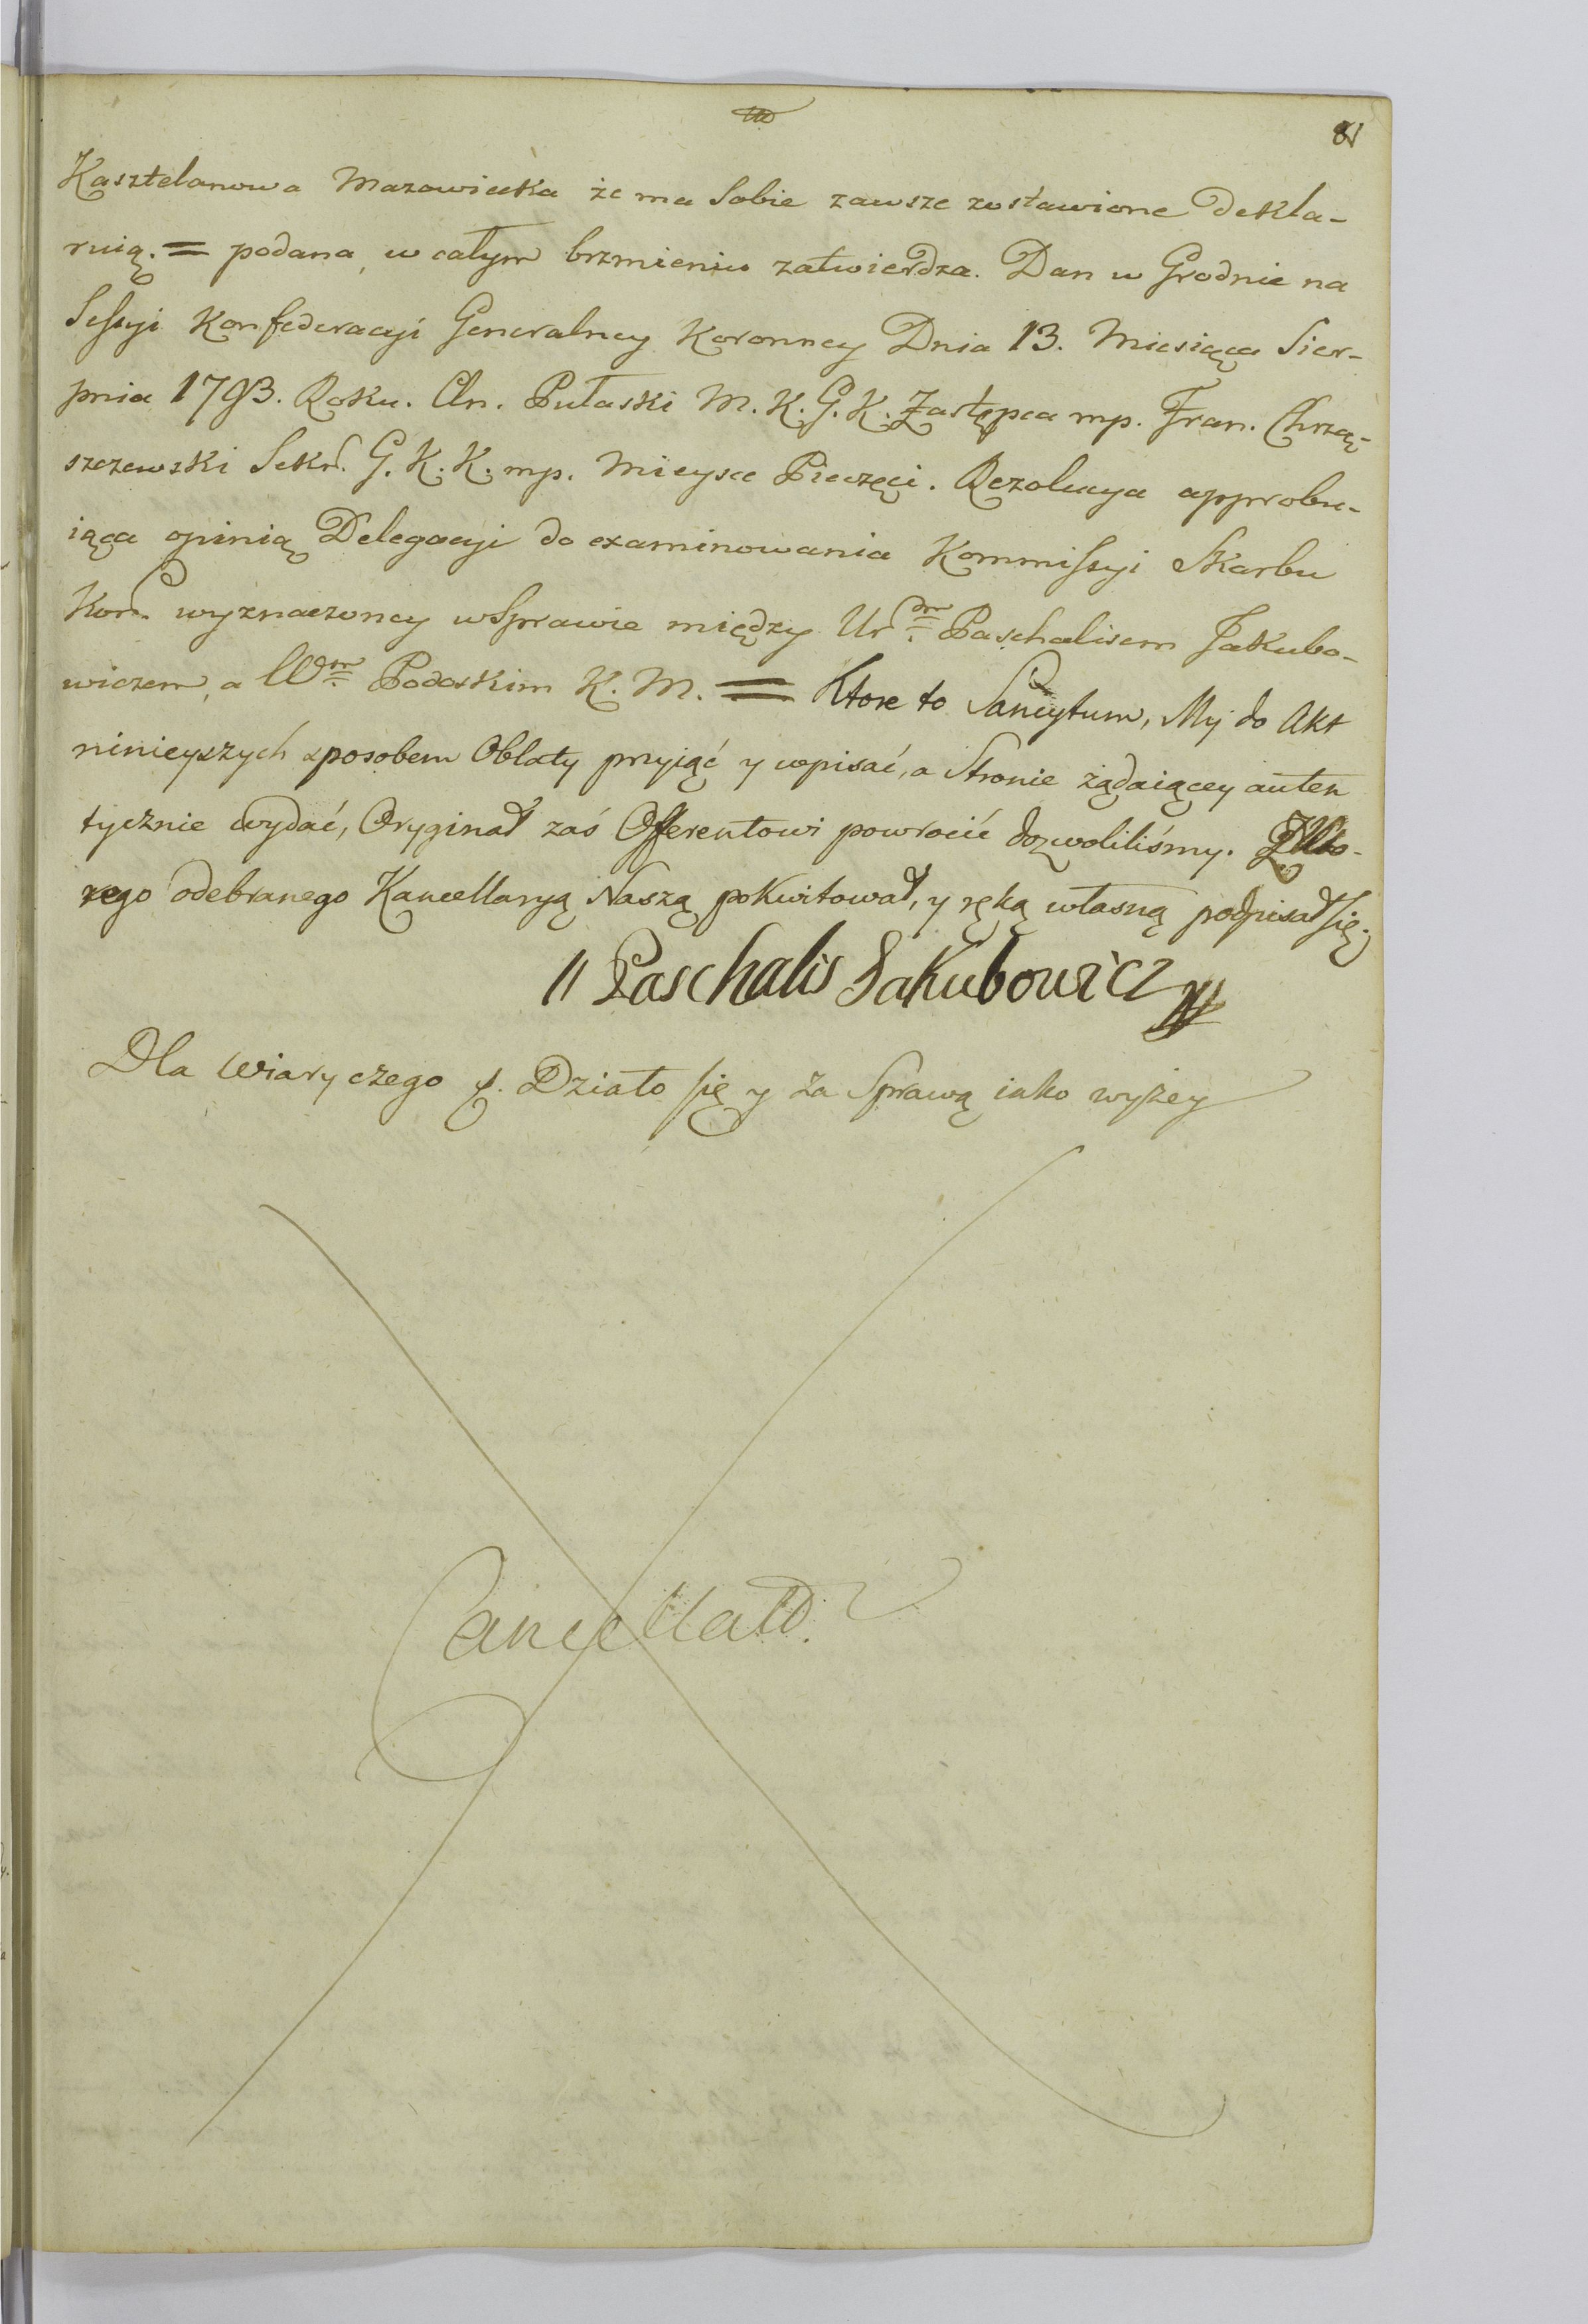 81
Kasztelanowa Mazowiecka że ma Sobie zawsze zostawione dekla-
ruią. = podana, w całym brzmieniu zatwierdza. Dan w Grodnie na
Sessyi Konfederacyi Generalney Koronney Dnia 13. Miesiąca Sier-
pnia 1793. Roku. An. Pułaski M. K. G. K. Zastępca mp. Fran. Chrzą-
szczewski Sekr. G. K. K. mp. Mieysce Pieczęci. Rezolucya approbu-
iąca opinią Delegacyi do examinowania Kommissyi Skarbu
Kor. wyznaczoney w Sprawie między Urdm Paschalisem Jakubo-
wiczem, a Wdm Podoskim K. M. = Ktore to Sancytum, My do Akt
ninieyszych sposobem Oblaty przyiąć y wpisać, a Stronie żądaiącey auten
tycznie wydać, Oryginał zaś Offerentowi powrocić dozwoliliśmy. Z Kto-
rego odebranego Kancellaryą Naszą pokwitował, y ręką własną podpisał się.
Paschalis Jakubowicz
Dla Wiary czego p. Działo się y za Sprawą iako wyżey
Cancellatd.